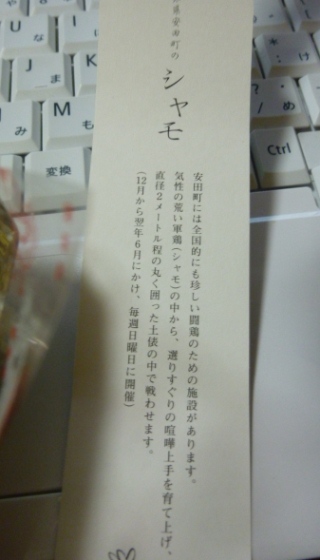 県安田町の
シャモ
安田町には全国的にも珍しい闘鶏のための施設があります。
気性の荒い軍鶏(シャモ)の中から、選りすぐりの喧嘩上手を育て上げ、
直径2メートル程の丸く囲った土俵の中で戦わせます。
(12月から翌年6月にかけ、毎週日曜日に開催)
U
I
J
K
M
ま
の
み
も
変換
め
Ctrl